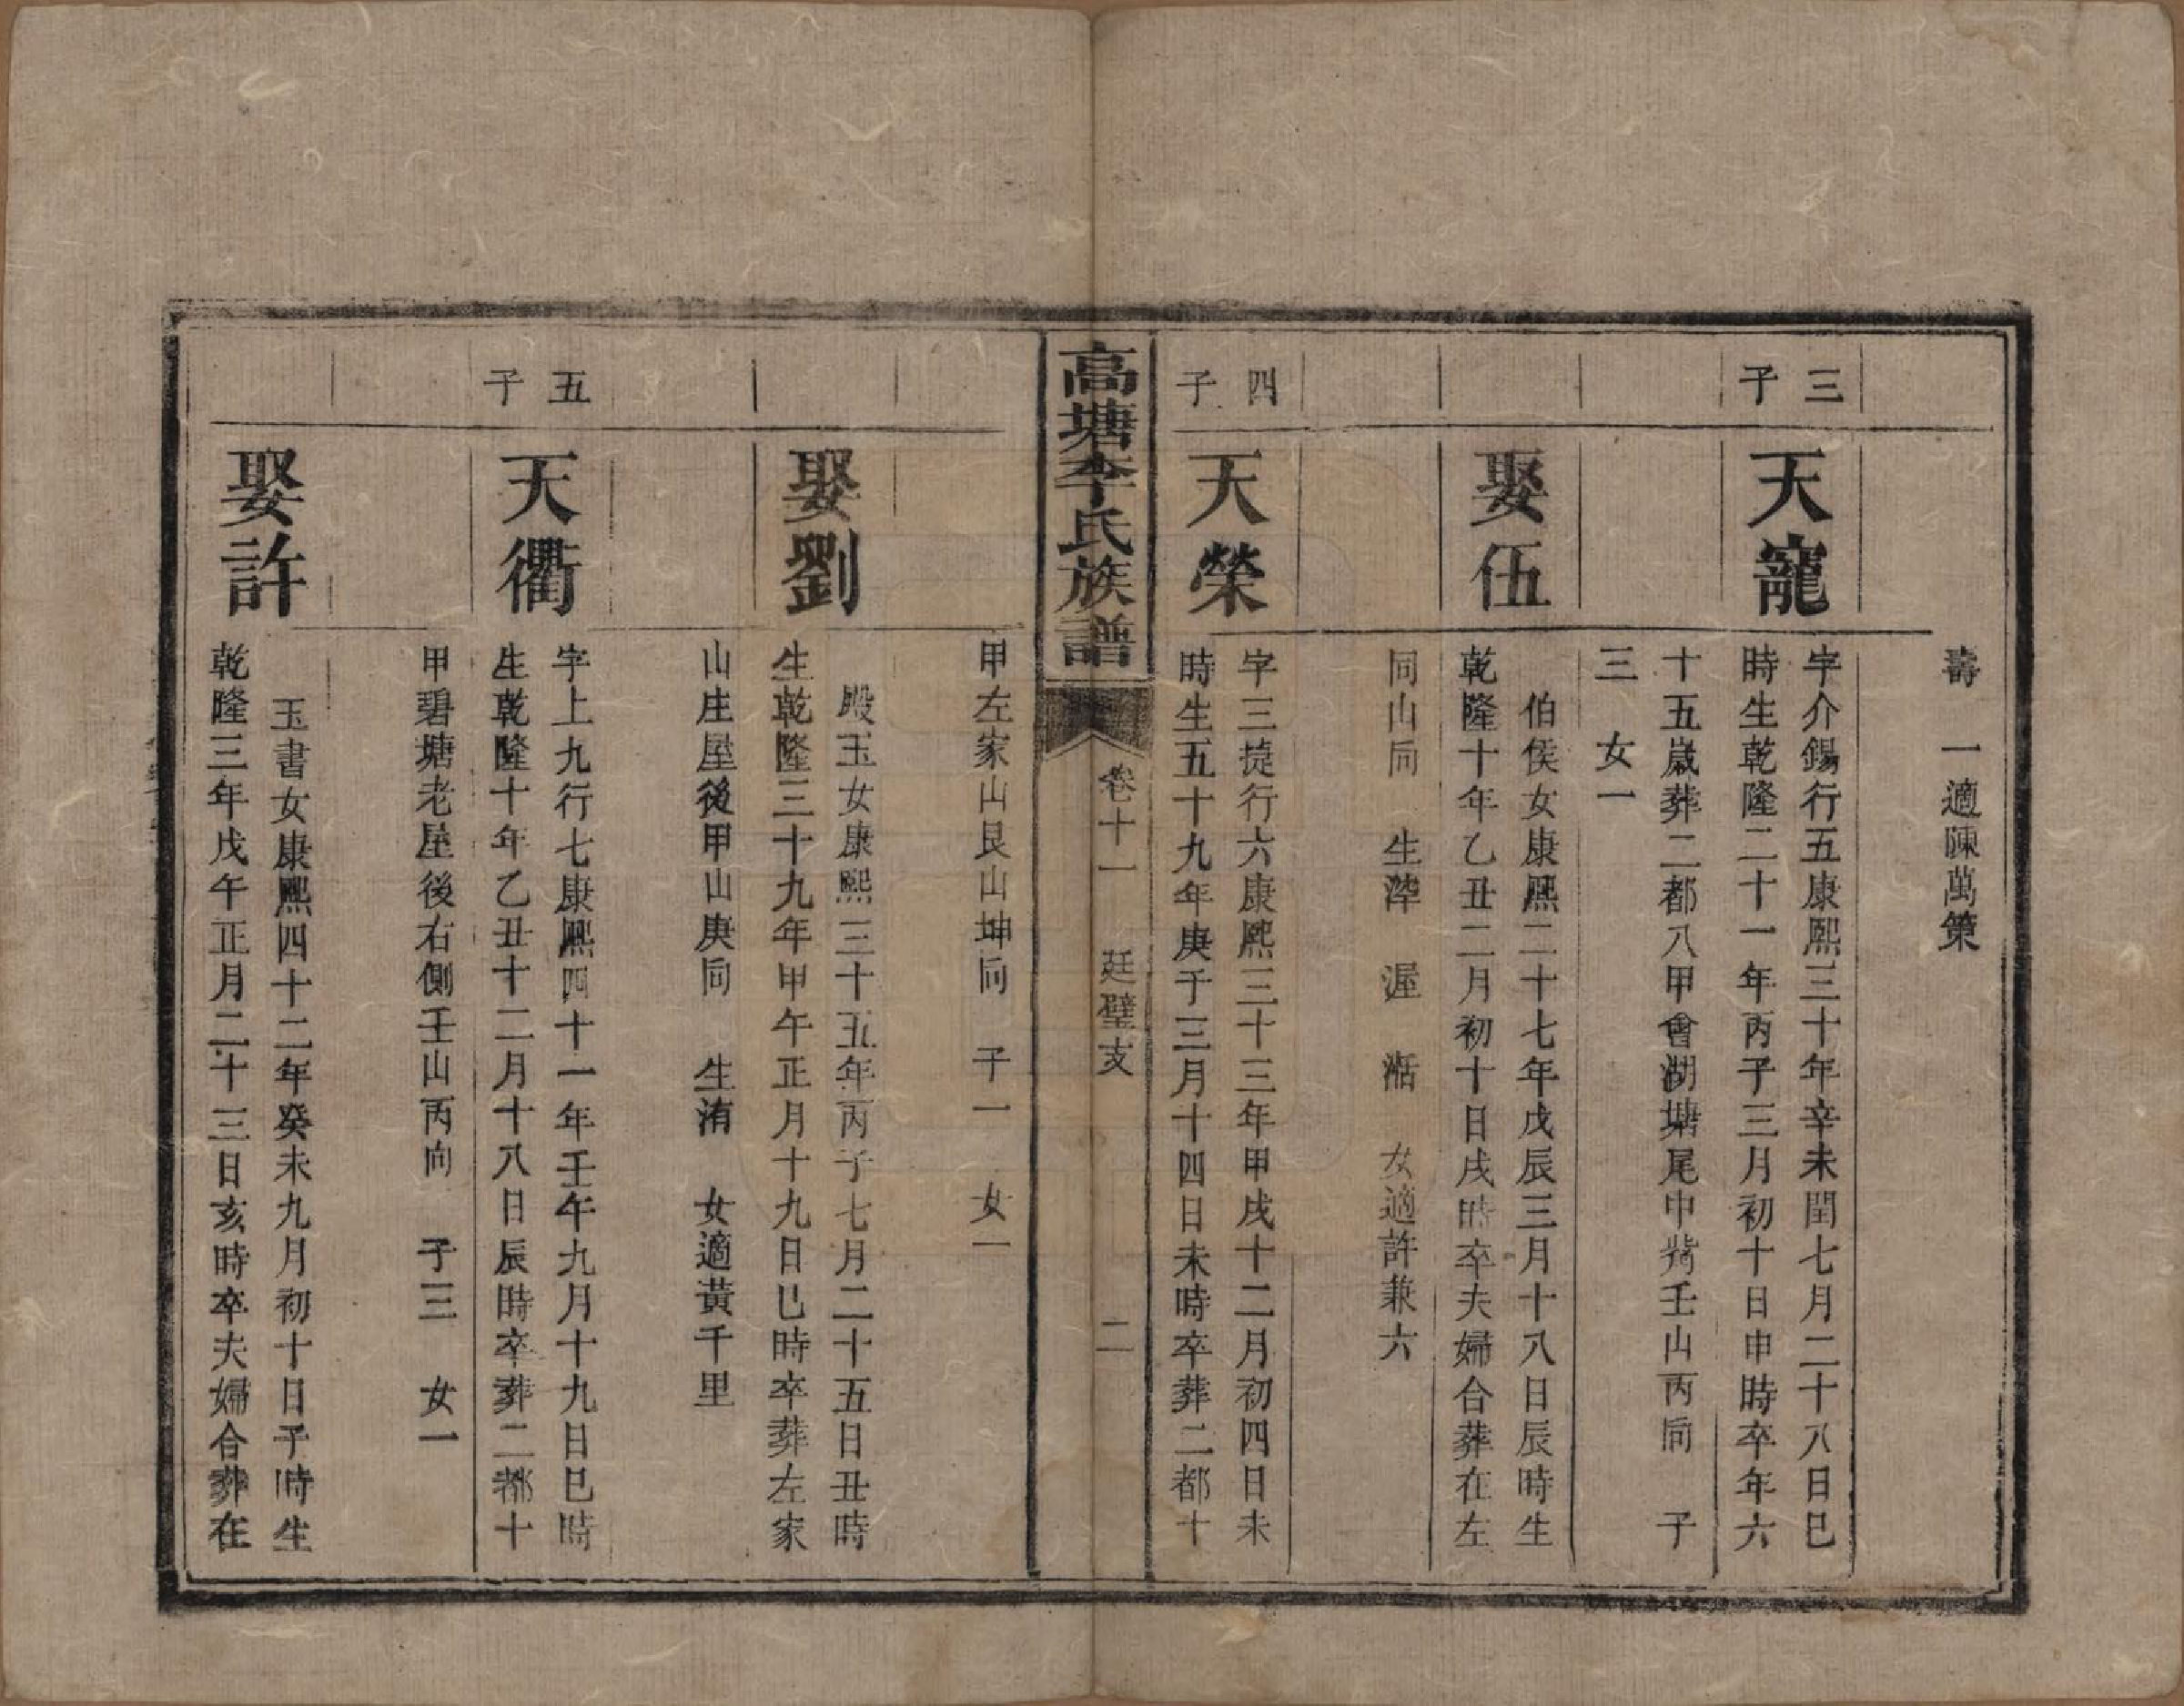 壽　一適陳萬策
三子
天寵
字介錫行五康熙三十年辛未閏七月二十八日巳
時生乾隆二十一年丙子三月初十日申時卒年六
十五歲葬二都八甲會湖塘尾中嘴壬山丙向　子
三　女一
娶伍
伯侯女康熙二十七年戊辰三月十八日辰時生
乾隆十年乙丑二月初十日戌時卒夫婦合葬在左
同山向　生滓　渥　湉　女適許兼六
四子
天榮
字三捷行六康熙三十三年甲戌十二月初四日未
時生五十九年庚子三月十四日未時卒葬二都十
高塘李氏族譜　卷十一　廷璧支　二
甲左家山艮山坤向　子一　女一
娶劉
殿玉女康熙三十五年丙子七月二十五日丑時
生乾隆三十九年甲午正月十九日巳時卒葬左家
山庄屋後甲山庚向　生洧　女適黃千里
五子
天衢
字上九行七康熙四十一年壬午九月十九日巳時
生乾隆十年乙丑十二月十八日辰時卒葬二都十
甲碧塘老屋後右側壬山丙向　子三　女一
娶許
玉書女康熙四十二年癸未九月初十日子時生
乾隆三年戊午正月二十三日亥時卒夫婦合葬在